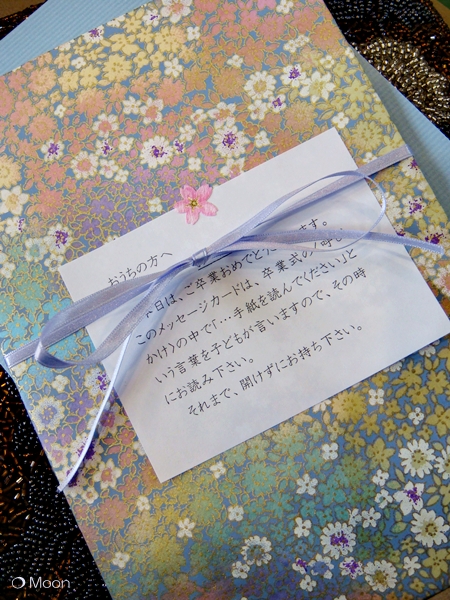 おうちの方へ
日は、ご卒業おめでとうございます。
このメッセージカードは、卒業式の〈呼び
かけ〉の中で「…手紙を読んでください」と
いう言葉を子どもが言いますので、その時
にお読み下さい。
それまで、開けずにお持ち下さい。
Moon